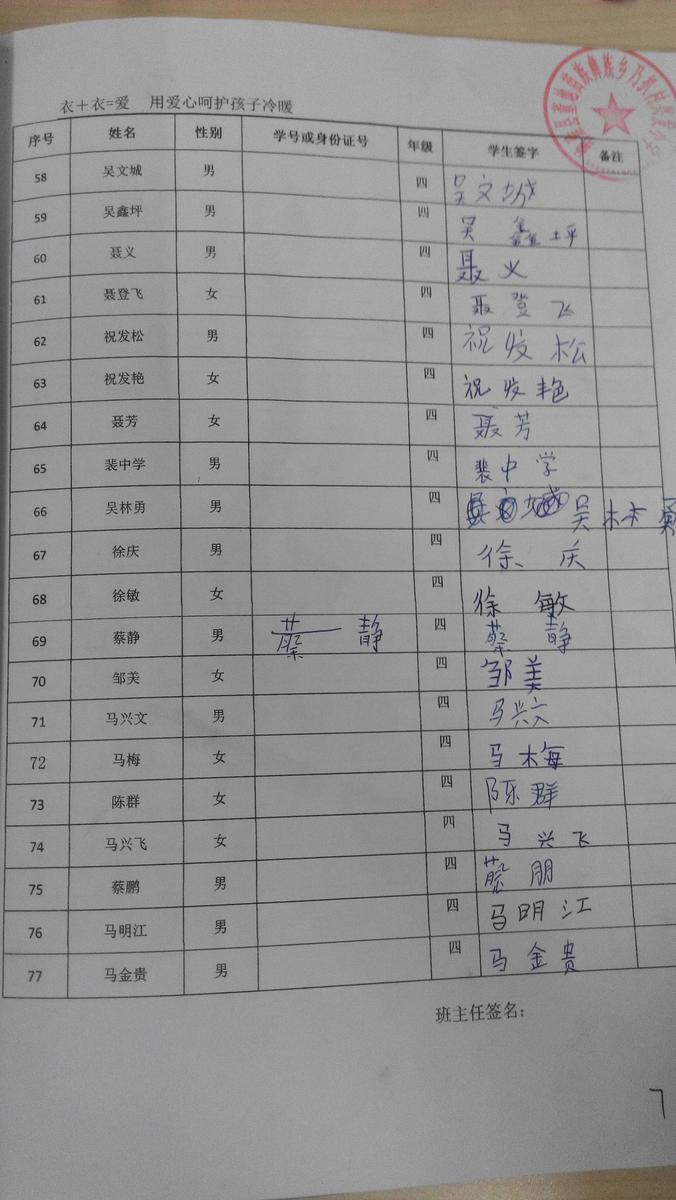 衣＋衣=爱 用爱心呵护孩子冷暖
序号 姓名 性别 学号或身份证号 年级 学生签字 备注
58 吴文城 男 四 吴文城
59 吴鑫坪 男 四 吴鑫坪
60 聂义 男 四 聂义
61 聂登飞 女 四 聂登飞
62 祝发松 男 四 祝发松
63 祝发艳 女 四 祝发艳
64 聂芳 女 四 聂芳
65 裴中学 男 四 裴中学
66 吴林勇 男 四 吴林勇
67 徐庆 男 四 徐庆
68 徐敏 女 四 徐敏
69 蔡静 男 蔡静 四 蔡静
70 邹美 女 四 邹美
71 马兴文 男 四 马兴文
72 马梅 女 四 马梅
73 陈群 女 四 陈群
74 马兴飞 女 四 马兴飞
75 蔡鹏 男 四 蔡朋
76 马明江 男 四 马明江
77 马金贵 男 四 马金贵
班主任签名：
7